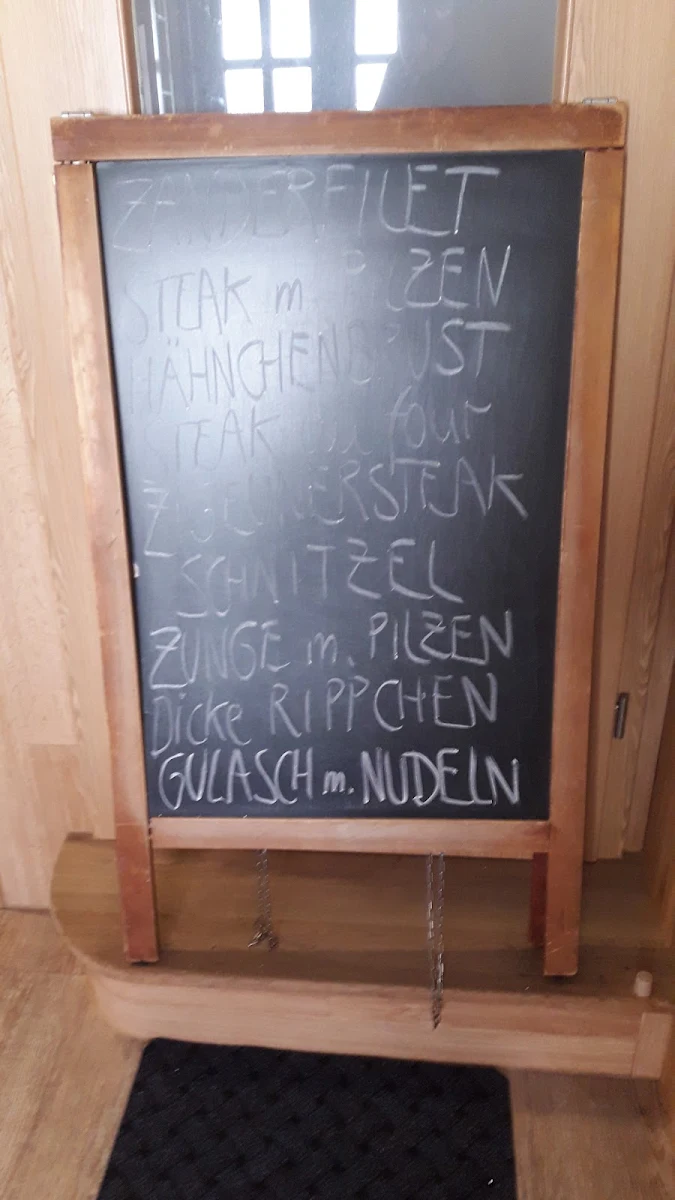 ZANDERFILET
STEAK m. PILZEN
HÄHNCHENBRUST
STEAK au four
ZIGEUNERSTEAK
SCHNITZEL
ZUNGE m. PILZEN
Dicke RIPPCHEN
GULASCH m. NUDELN